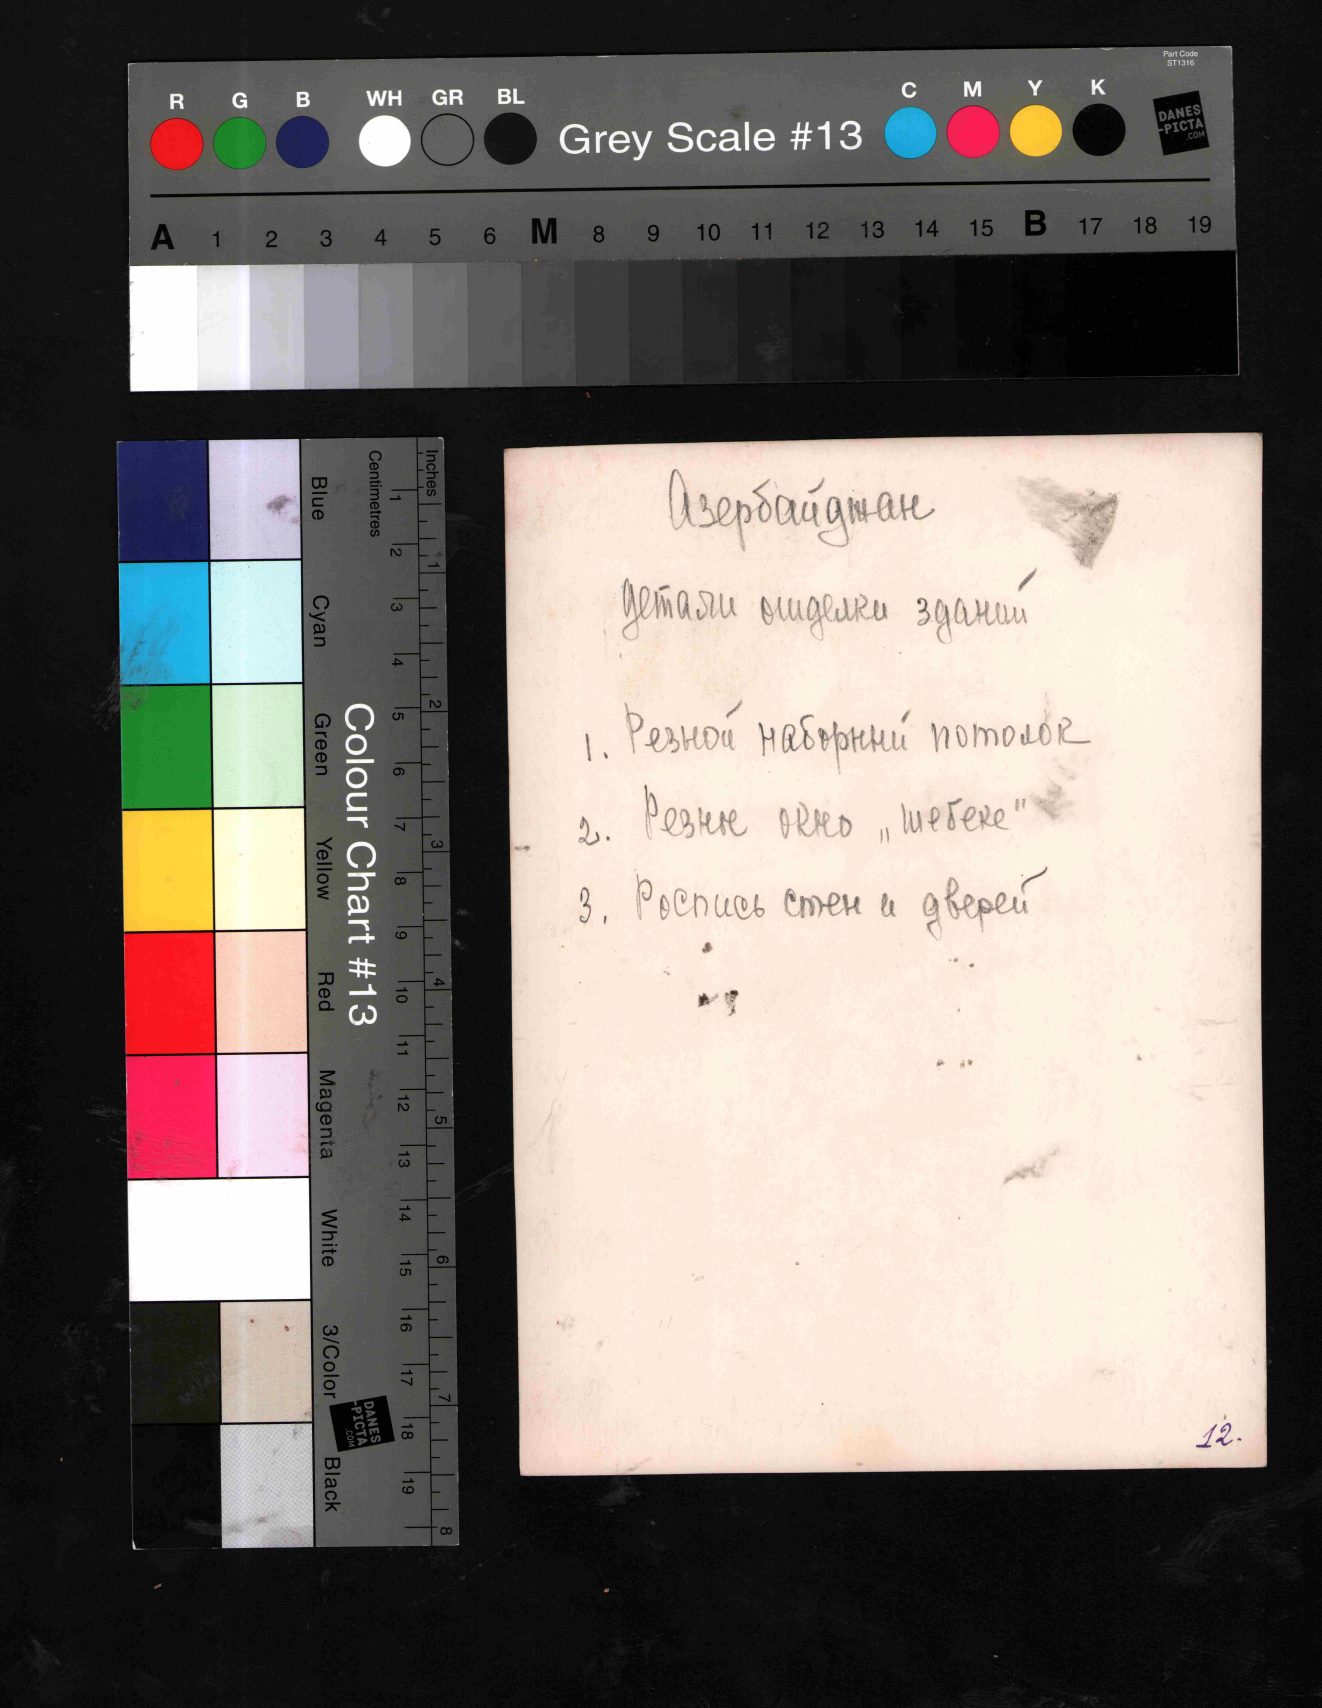 Part Code
ST1316
R G B WH GR BL Grey Scale #13 C M Y K
DANES
-PICTA
.COM
A 1 2 3 4 5 6 M 8 9 10 11 12 13 14 15 B 17 18 19
Colour Chart #13
Blue
Cyan
Green
Yellow
Red
Magenta
White
3/Color
Black
Centimetres
1 2 3 4 5 6 7 8 9 10 11 12 13 14 15 16 17 18 19
Inches
1 2 3 4 5 6 7 8
DANES
-PICTA
.COM
Азербайджан
детали отделки зданий
1. Резной наборный потолок
2. Резное окно „шебеке"
3. Роспись стен и дверей
12.